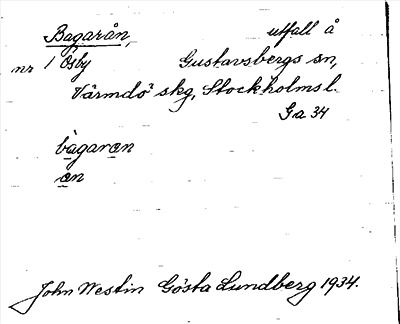 Bagarån, utfall å
nr 1 Ösby Gustavsbergs sn,
Värmdö skg, Stockholms l.
Ga 34
bagaræn
æn
John Westin Gösta Lundberg 1934.